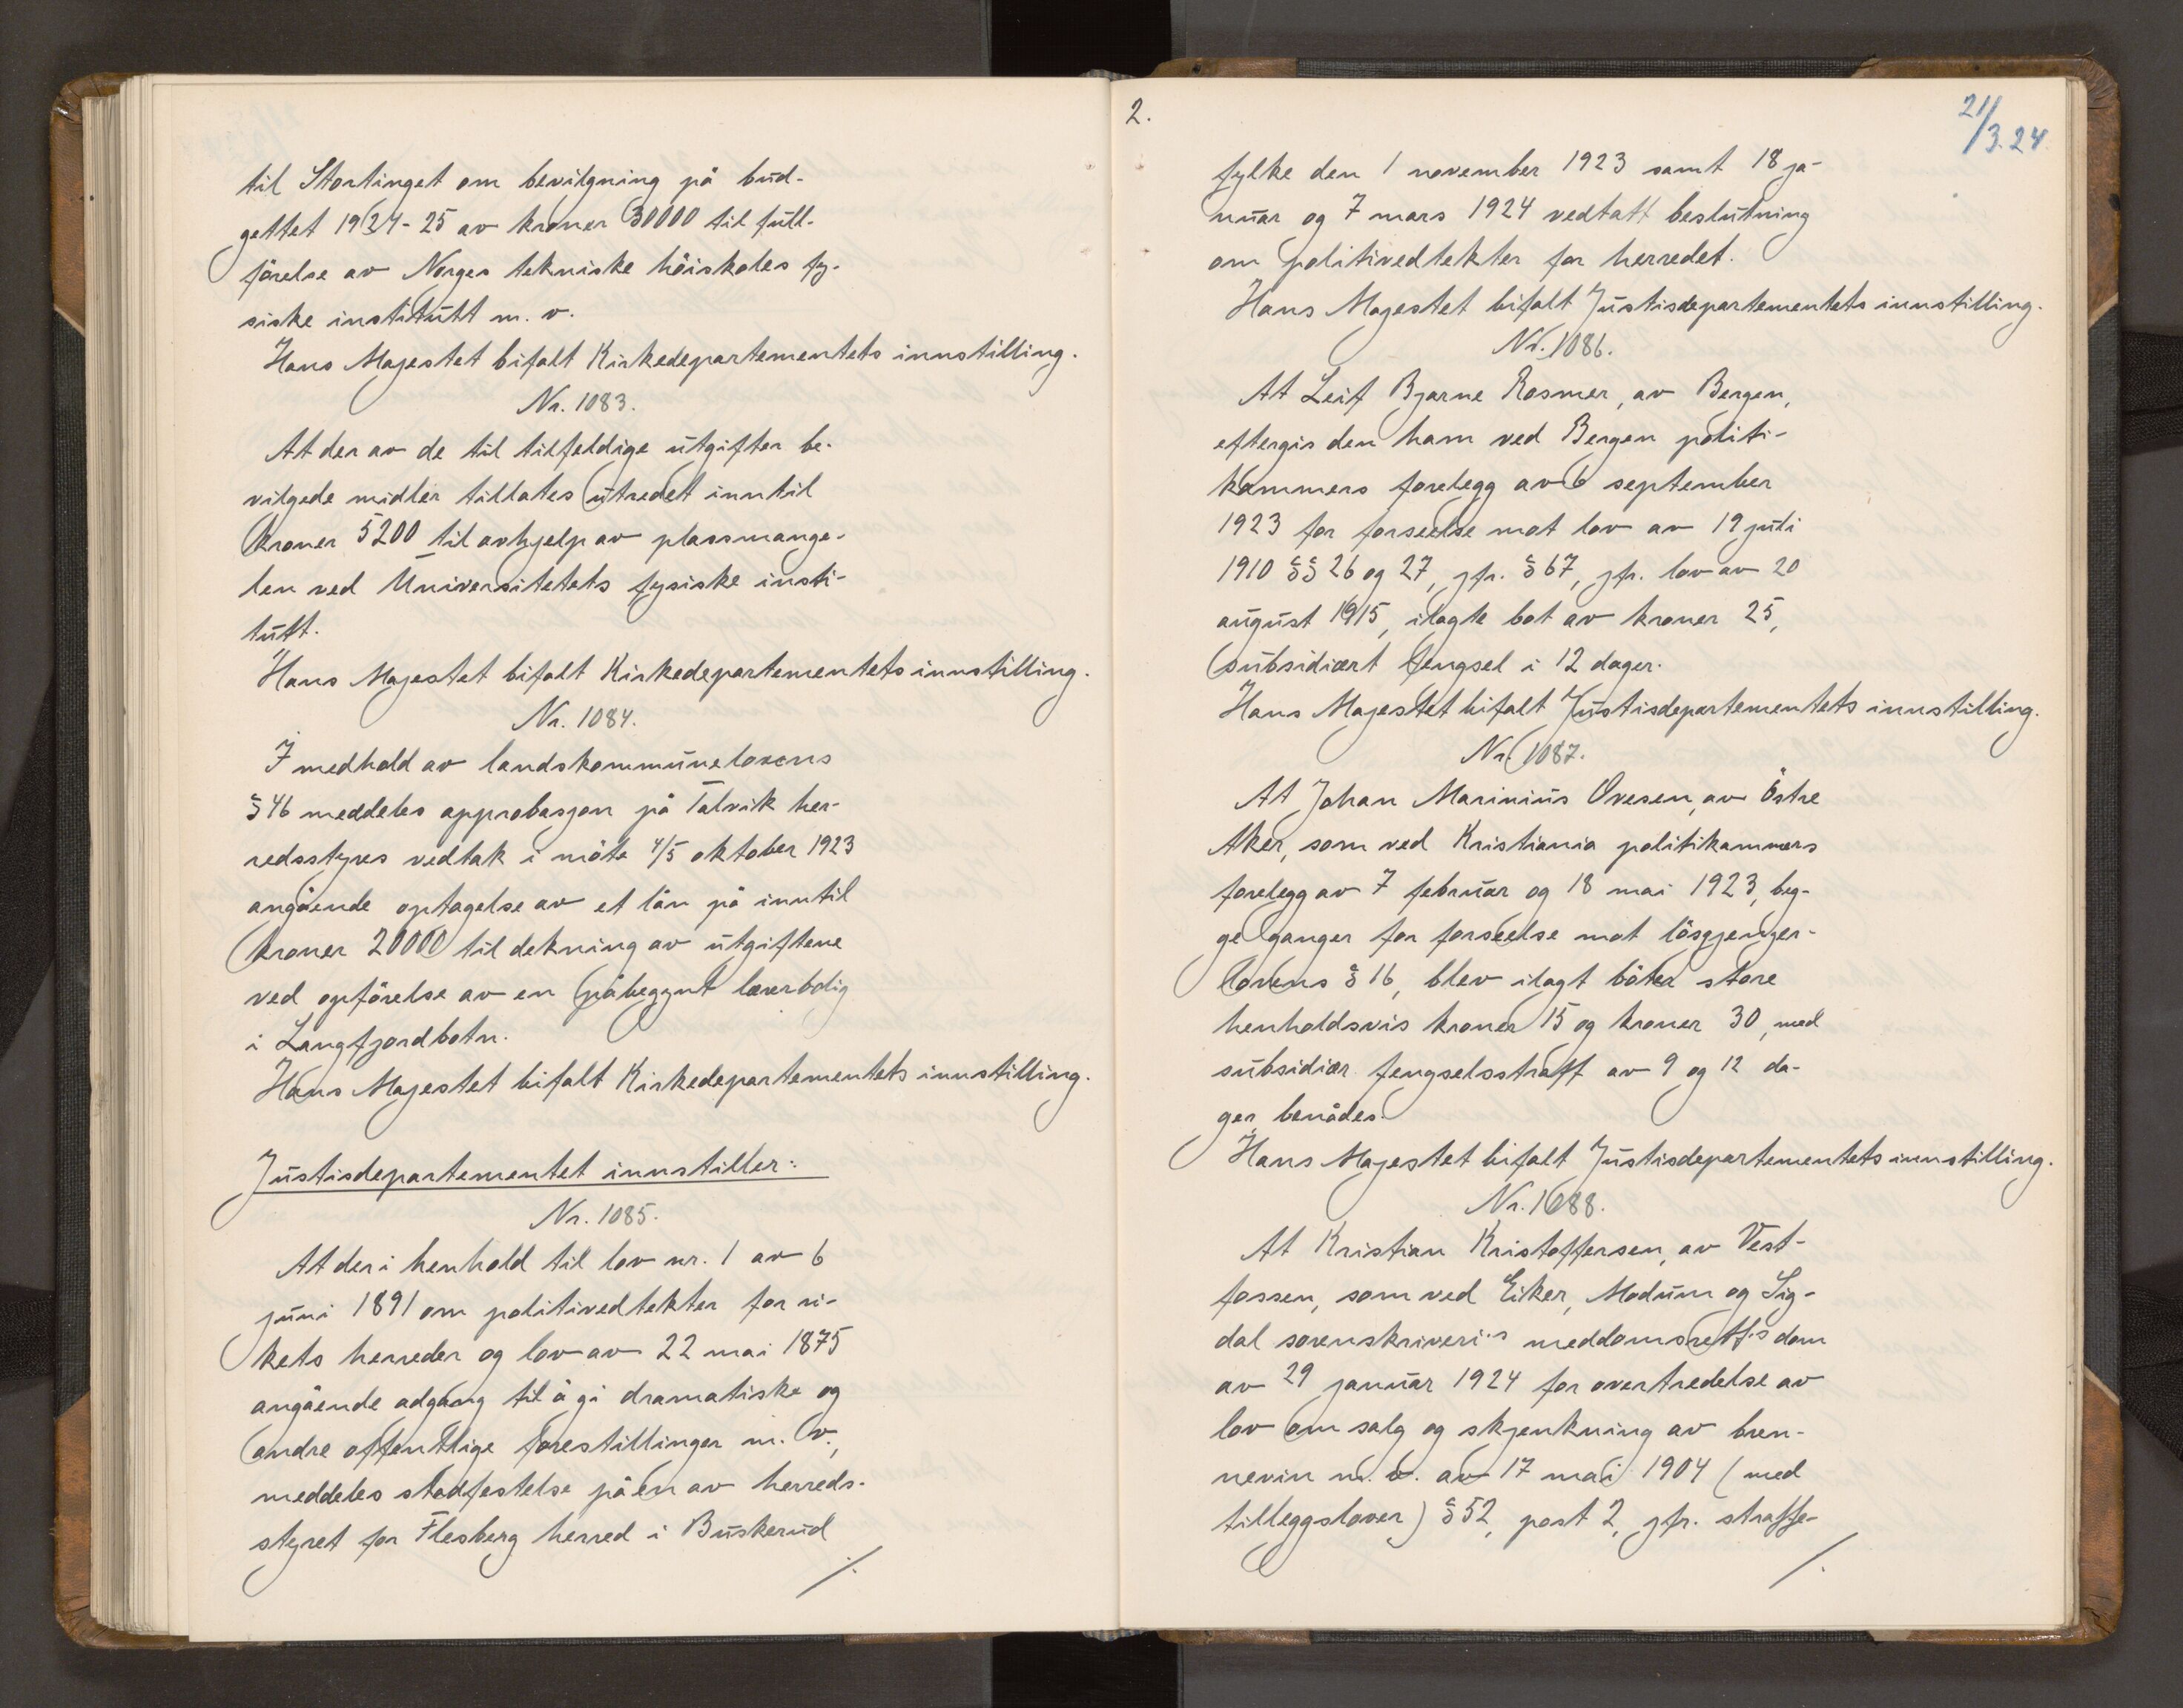 til Stortinget om bevilgning på bud-
gettet 1924-25 av kroner 30000 til full-
förelse av Norges tekniske höiskoles fy-
siske institutt m. v.
Hans Majestet bifalt Kirkedepartementets innstilling.
Nr. 1083.
At der av de til tilfeldige utgifter be-
vilgede midler tillates utredet inntil
kroner 5200 til avhjelp av plassmange-
len ved Universitetets fysiske insti-
tutt.
Hans Majestet bifalt Kirkedepartementets innstilling.
Nr. 1084.
I medhold av landskommunelovens
§ 46 meddeles approbasjon på Talvik her-
redsstyres vedtak i möte 4/5 oktober 1923
angående optagelse av et lån på inntil
kroner 20000 til dekning av utgiftene
ved opförelse av en påbegynt lærerbolig
i Langfjordbotn.
Hans Majestet bifalt Kirkedepartementets innstilling.
Justisdepartementet innstiller:
Nr. 1085.
At der i henhold til lov nr. 1 av 6
juni 1891 om politivedtekter for ri-
kets herreder og lov av 22 mai 1875
angående adgang til å gi dramatiske og
andre offentlige forestillinger m. v.,
meddeles stadfestelse på en av herreds-
styret for Flesberg herred i Buskerud
./.
2.
21/3.24.
fylke den 1 november 1923 samt 18 ja-
nuar og 7 mars 1924 vedtatt beslutning
om politivedtekter for herredet.
Hans Majestet bifalt Justisdepartementets innstilling.
Nr. 1086.
At Leif Bjarne Rosmer, av Bergen,
eftergis den ham ved Bergen politi-
kammers forelegg av 6 september
1923 for forseelse mot lov av 19 juli
1910 §§ 26 og 27, jfr. § 67, jfr. lov av 20
august 1915, ilagte bot av kroner 25,
subsidiært fengsel i 12 dager.
Hans Majestet bifalt Justisdepartementets innstilling.
Nr. 1087.
At Johan Marinius Ovesen, av Östre
Aker, som ved Kristiania politikammers
forelegg av 7 februar og 18 mai 1923, beg-
ge ganger for forseelse mot lösgjenger-
lovens § 16, blev ilagt böter store
henholdsvis kroner 15 og kroner 30, med
subsidiær fengselsstraff av 9 og 12 da-
ger, benådes.
Hans Majestet bifalt Justisdepartementets innstilling.
Nr. 1088.
At Kristian Kristoffersen, av Vest-
fossen, som ved Eiker, Modum og Sig-
dal sorenskriveri's meddomsrett's dom
av 29 januar 1924 for overtredelse av
lov om salg og skjenkning av bren-
nevin m. v. av 17 mai 1904 (med
tilleggslover) § 52, post 2, jfr. straffe-
./.